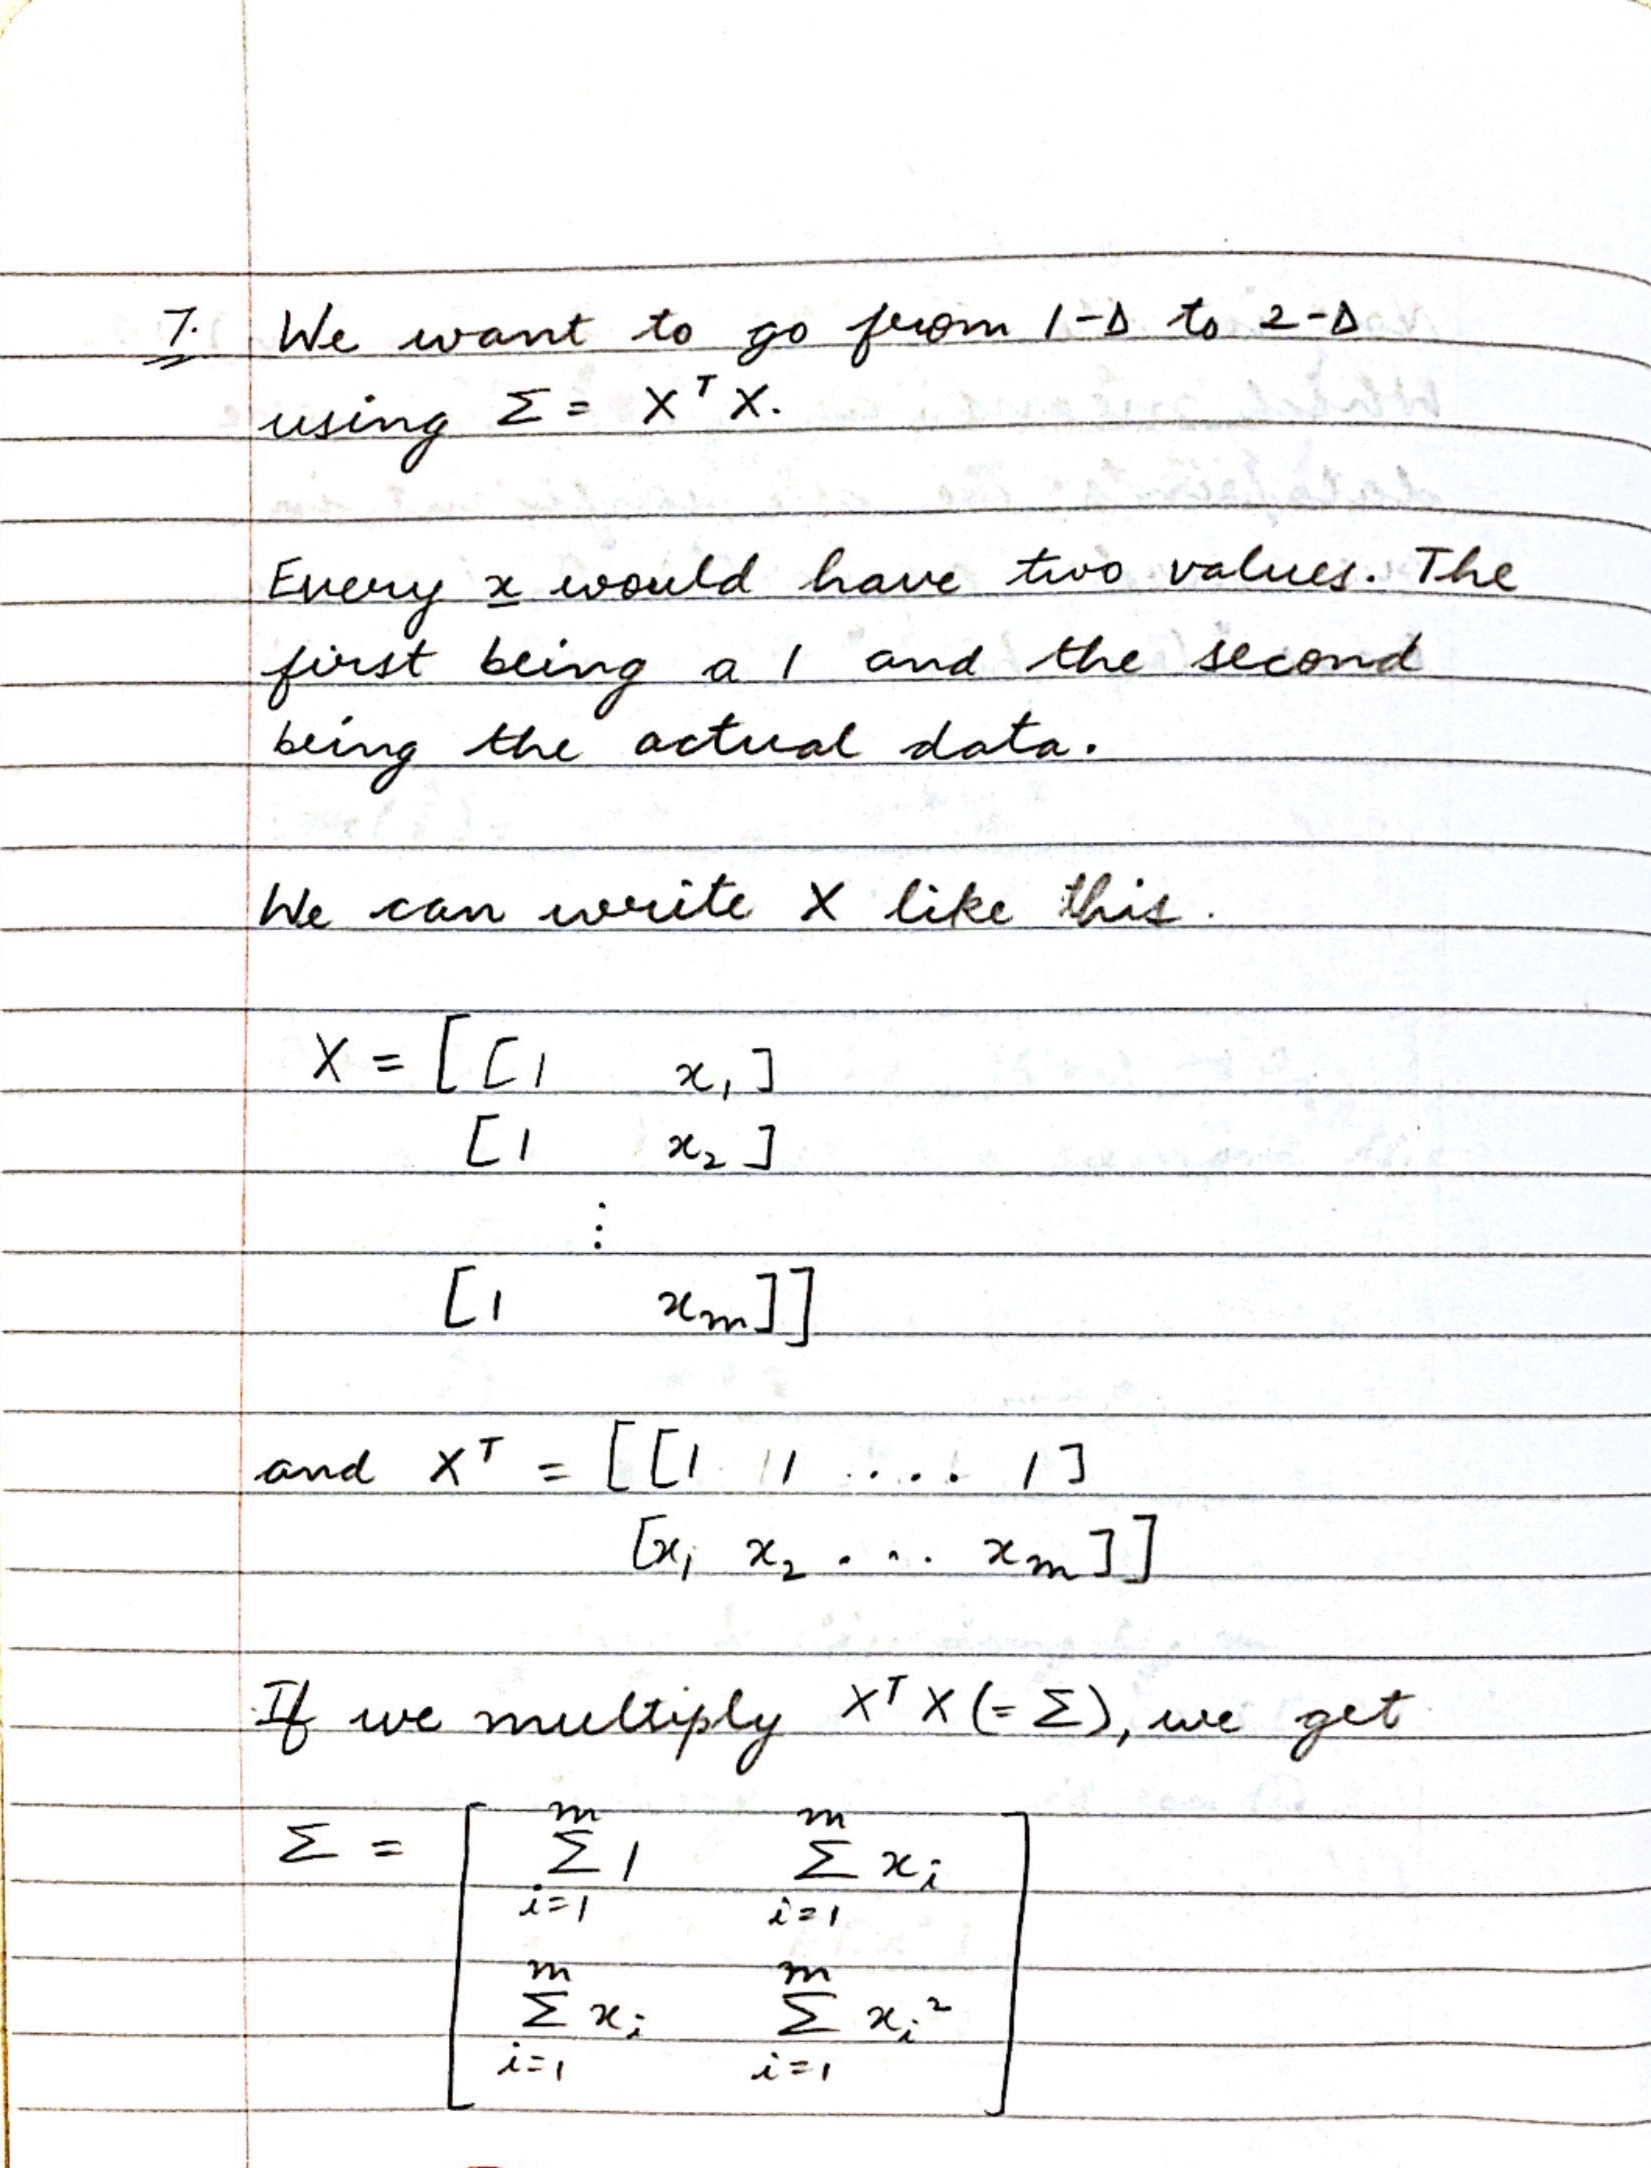 7. We want to go from 1-D to 2-D
using Σ = XᵀX.
Every x would have two values. The
first being a 1 and the second
being the actual data.
We can write X like this.
X = [[1 x₁]
[1 x₂]
⋮
[1 xₘ]]
and Xᵀ = [[1 1 .... 1]
[x₁ x₂ .... xₘ]]
If we multiply XᵀX (= Σ), we get
Σ = [ m∑i=1 1 m∑i=1 xᵢ
m∑i=1 xᵢ m∑i=1 xᵢ² ]